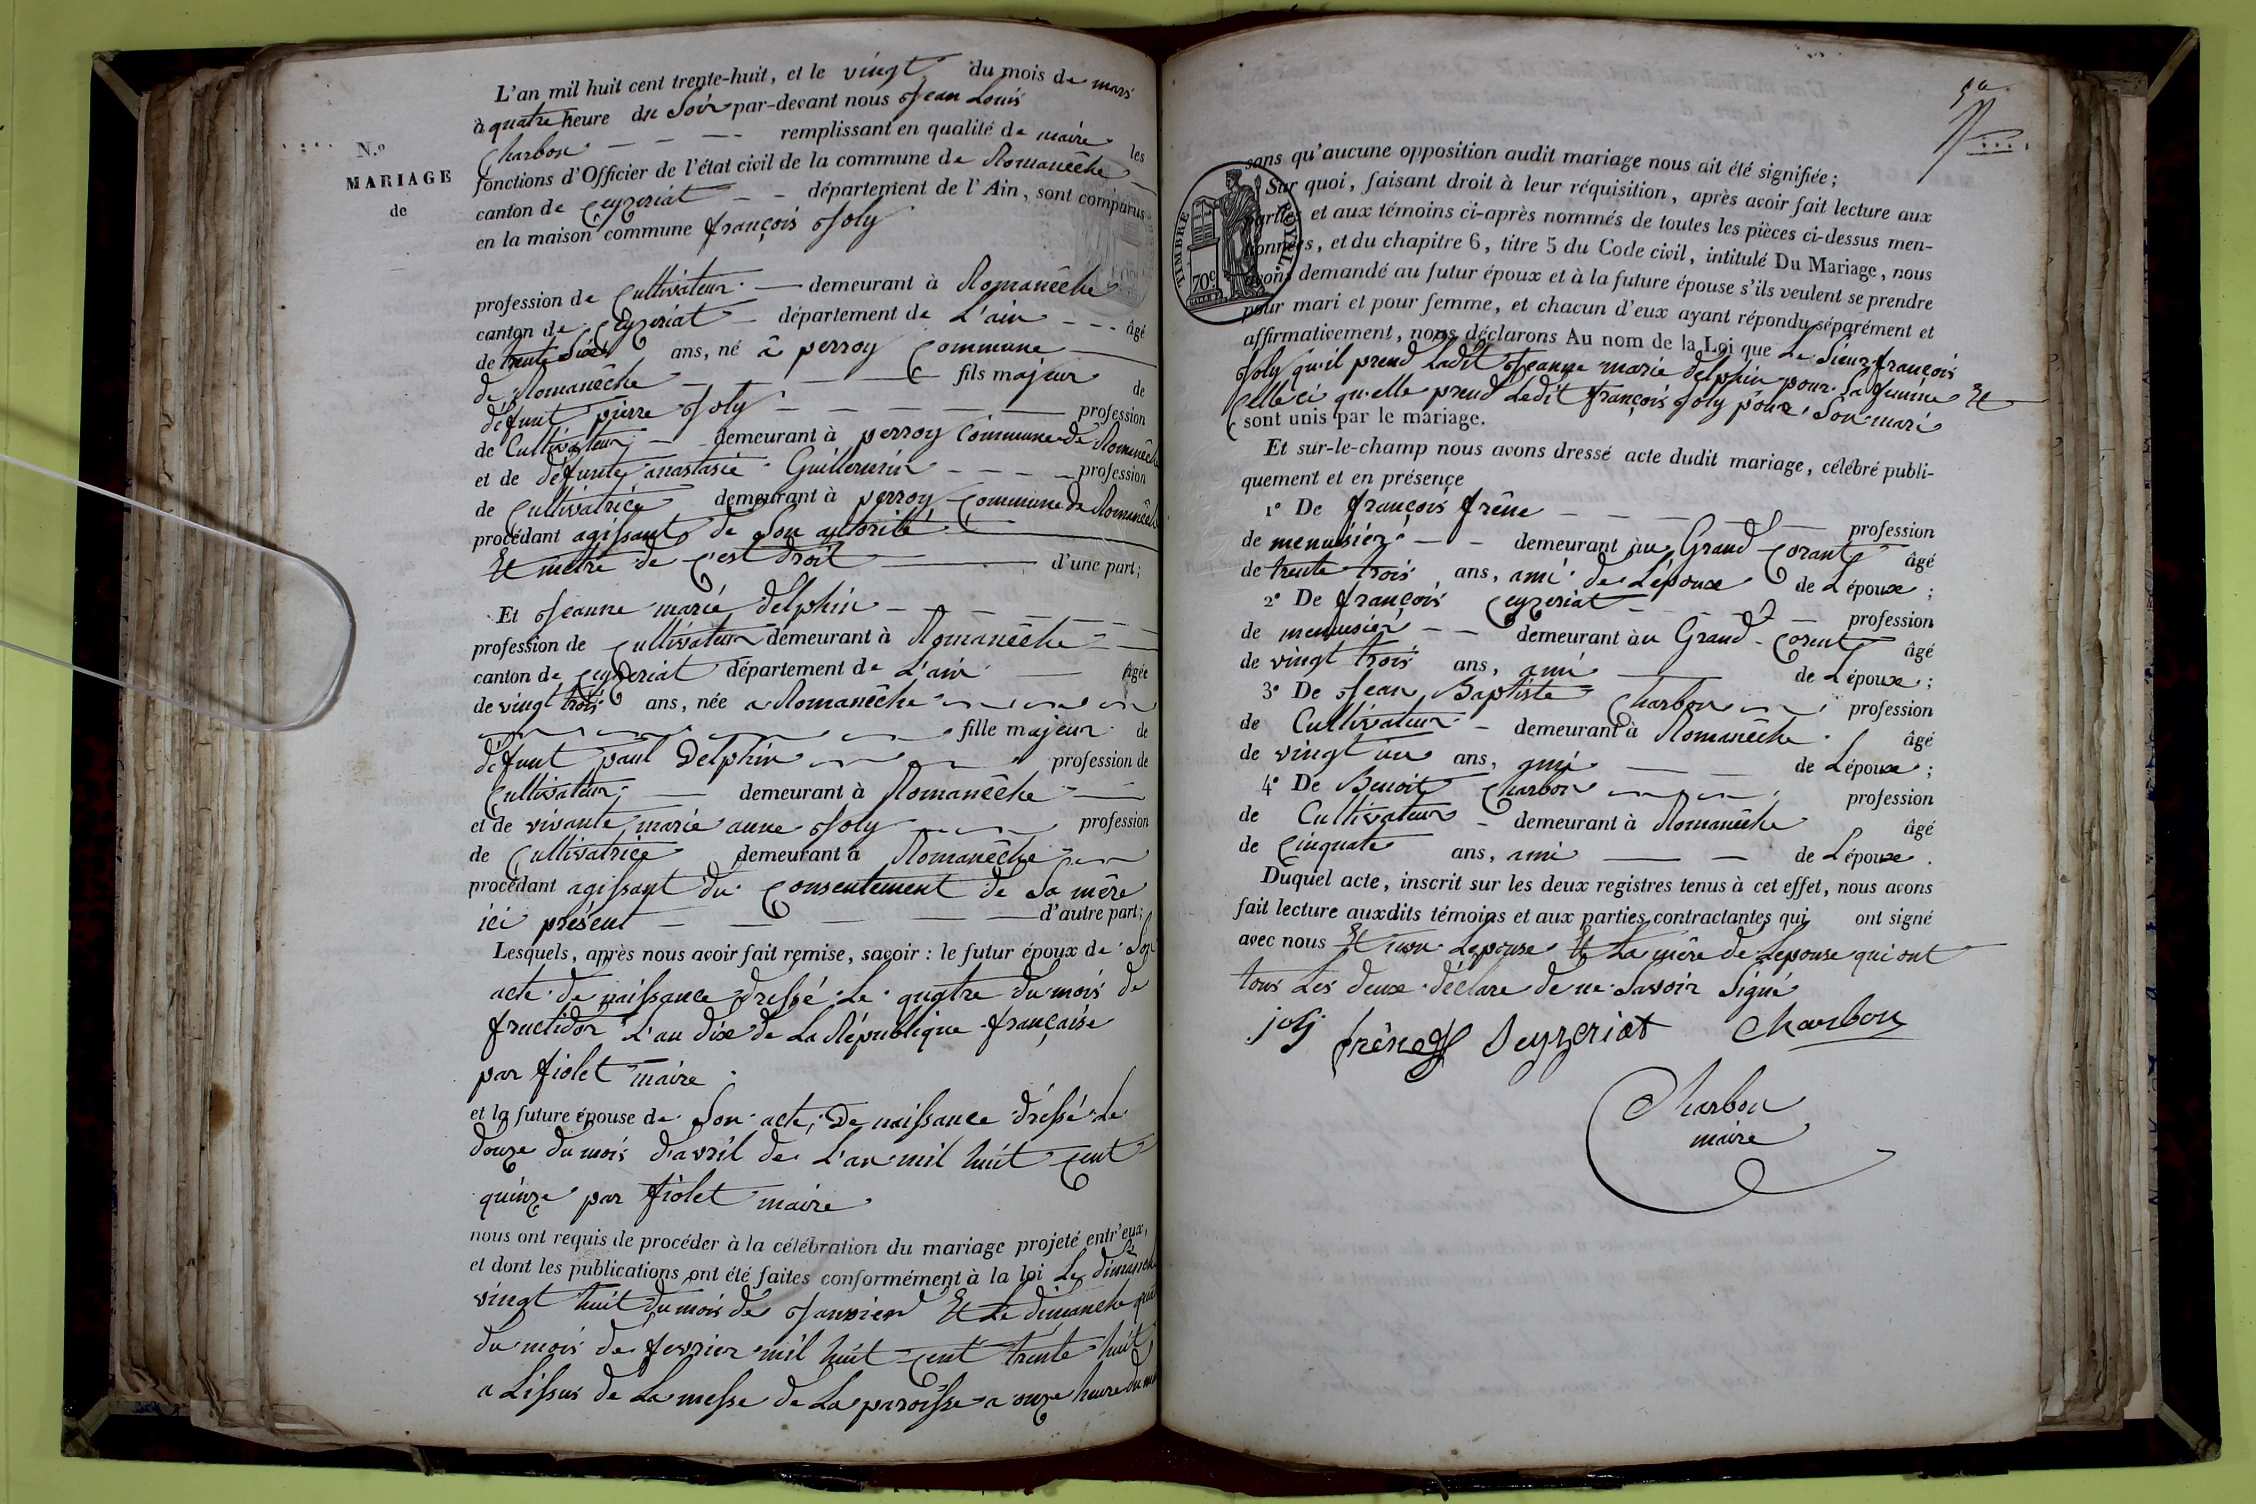 L'an mil huit cent trente-huit, et le vingt du mois de mars
à quatre heure du Soir par-devant nous Jean Louis
Charbon remplissant en qualité de maire les
fonctions d'Officier de l'état civil de la commune de Romanêche
canton de Ceyzeriat département de l'Ain, sont comparus
en la maison commune françois Joly
N.o
MARIAGE
de
profession de Cultivateur demeurant à Romanêche
canton de Ceyzeriat département de L'ain âgé
de trente Six ans, né à perroy Commune
de Romanêche fils majeur de
défunt pierre Joly profession
de Cultivateur demeurant à perroy Commune de Romanêche
et de défunte anastasie Guillermin profession
de Cultivatrice demeurant à perroy Commune de Romanêche
procédant agissant de Son autorité
Et metre de c'est droit d'une part;
Et Jeanne marie delphin
profession de Cultivateur demeurant à Romanêche
canton de Ceyzeriat département de L'ain âgée
de vingt trois ans, née a Romanêche
fille majeur de
défunt paul Delphin profession de
Cultivateur demeurant à Romanêche
et de vivante marie anne Joly profession
de Cultivatrice demeurant à Romanêche
procédant agissant du Consentement de Sa mêre
ici présent d'autre part;
Lesquels, après nous avoir fait remise, savoir : le futur époux de Son
acte de naissance dressé le quatre du mois de
fructidor L'an dix de La République française
par fiolet maire
et la future épouse de Son acte, De naissance dressé Le
douze du mois d'avril de L'an mil huit cent
quinze par fiolet maire
nous ont requis de procéder à la célébration du mariage projeté entr'eux,
et dont les publications ont été faites conformément à la loi Le dimanche
vingt huit du mois de Janvier Et Le dimanche
du mois de fevrier mil huit cent trente huit
a Lissus de La messe de La paroisse a onze heure du
sans qu'aucune opposition audit mariage nous ait été signifiée;
Sur quoi, faisant droit à leur réquisition, après avoir fait lecture aux
parties et aux témoins ci-après nommés de toutes les pièces ci-dessus men-
tionnées, et du chapitre 6, titre 5 du Code civil, intitulé Du Mariage, nous
avons demandé au futur époux et à la future épouse s'ils veulent se prendre
pour mari et pour femme, et chacun d'eux ayant répondu séparément et
affirmativement, nous déclarons Au nom de la Loi que Le Sieur françois
Joly qu'il prend Ladit Jeanne marie delphin pour Sa femme Et
Celle ci qu'elle prend Ledit françois Joly pour Son mari
sont unis par le mariage.
Et sur-le-champ nous avons dressé acte dudit mariage, célébré publi-
quement et en présence
1° De françois frêne profession
de menuisier demeurant au Grand Corant âgé
de trente trois ans, ami de Lépoux de Lépoux ;
2° De françois Ceyzeriat profession
de menuisier demeurant au Grand Corent âgé
de vingt trois ans, ami de Lépoux ;
3° De Jean Baptiste Charbon profession
de Cultivateur demeurant à Romanêche âgé
de vingt un ans, ami de Lépoux ;
4° De Benoit Charbon profession
de Cultivateur demeurant à Romanêche âgé
de Cinquate ans, ami de Lépoux .
Duquel acte, inscrit sur les deux registres tenus à cet effet, nous avons
fait lecture auxdits témoins et aux parties contractantes qui ont signé
avec nous Et non Lepouse Et La mêre de Lepouse qui ont
tous Les deux déclare de ne Savoir Signé
joly frêne Seyzeriat Charbon
Charbon
maire
TIMBRE ROYAL
70c